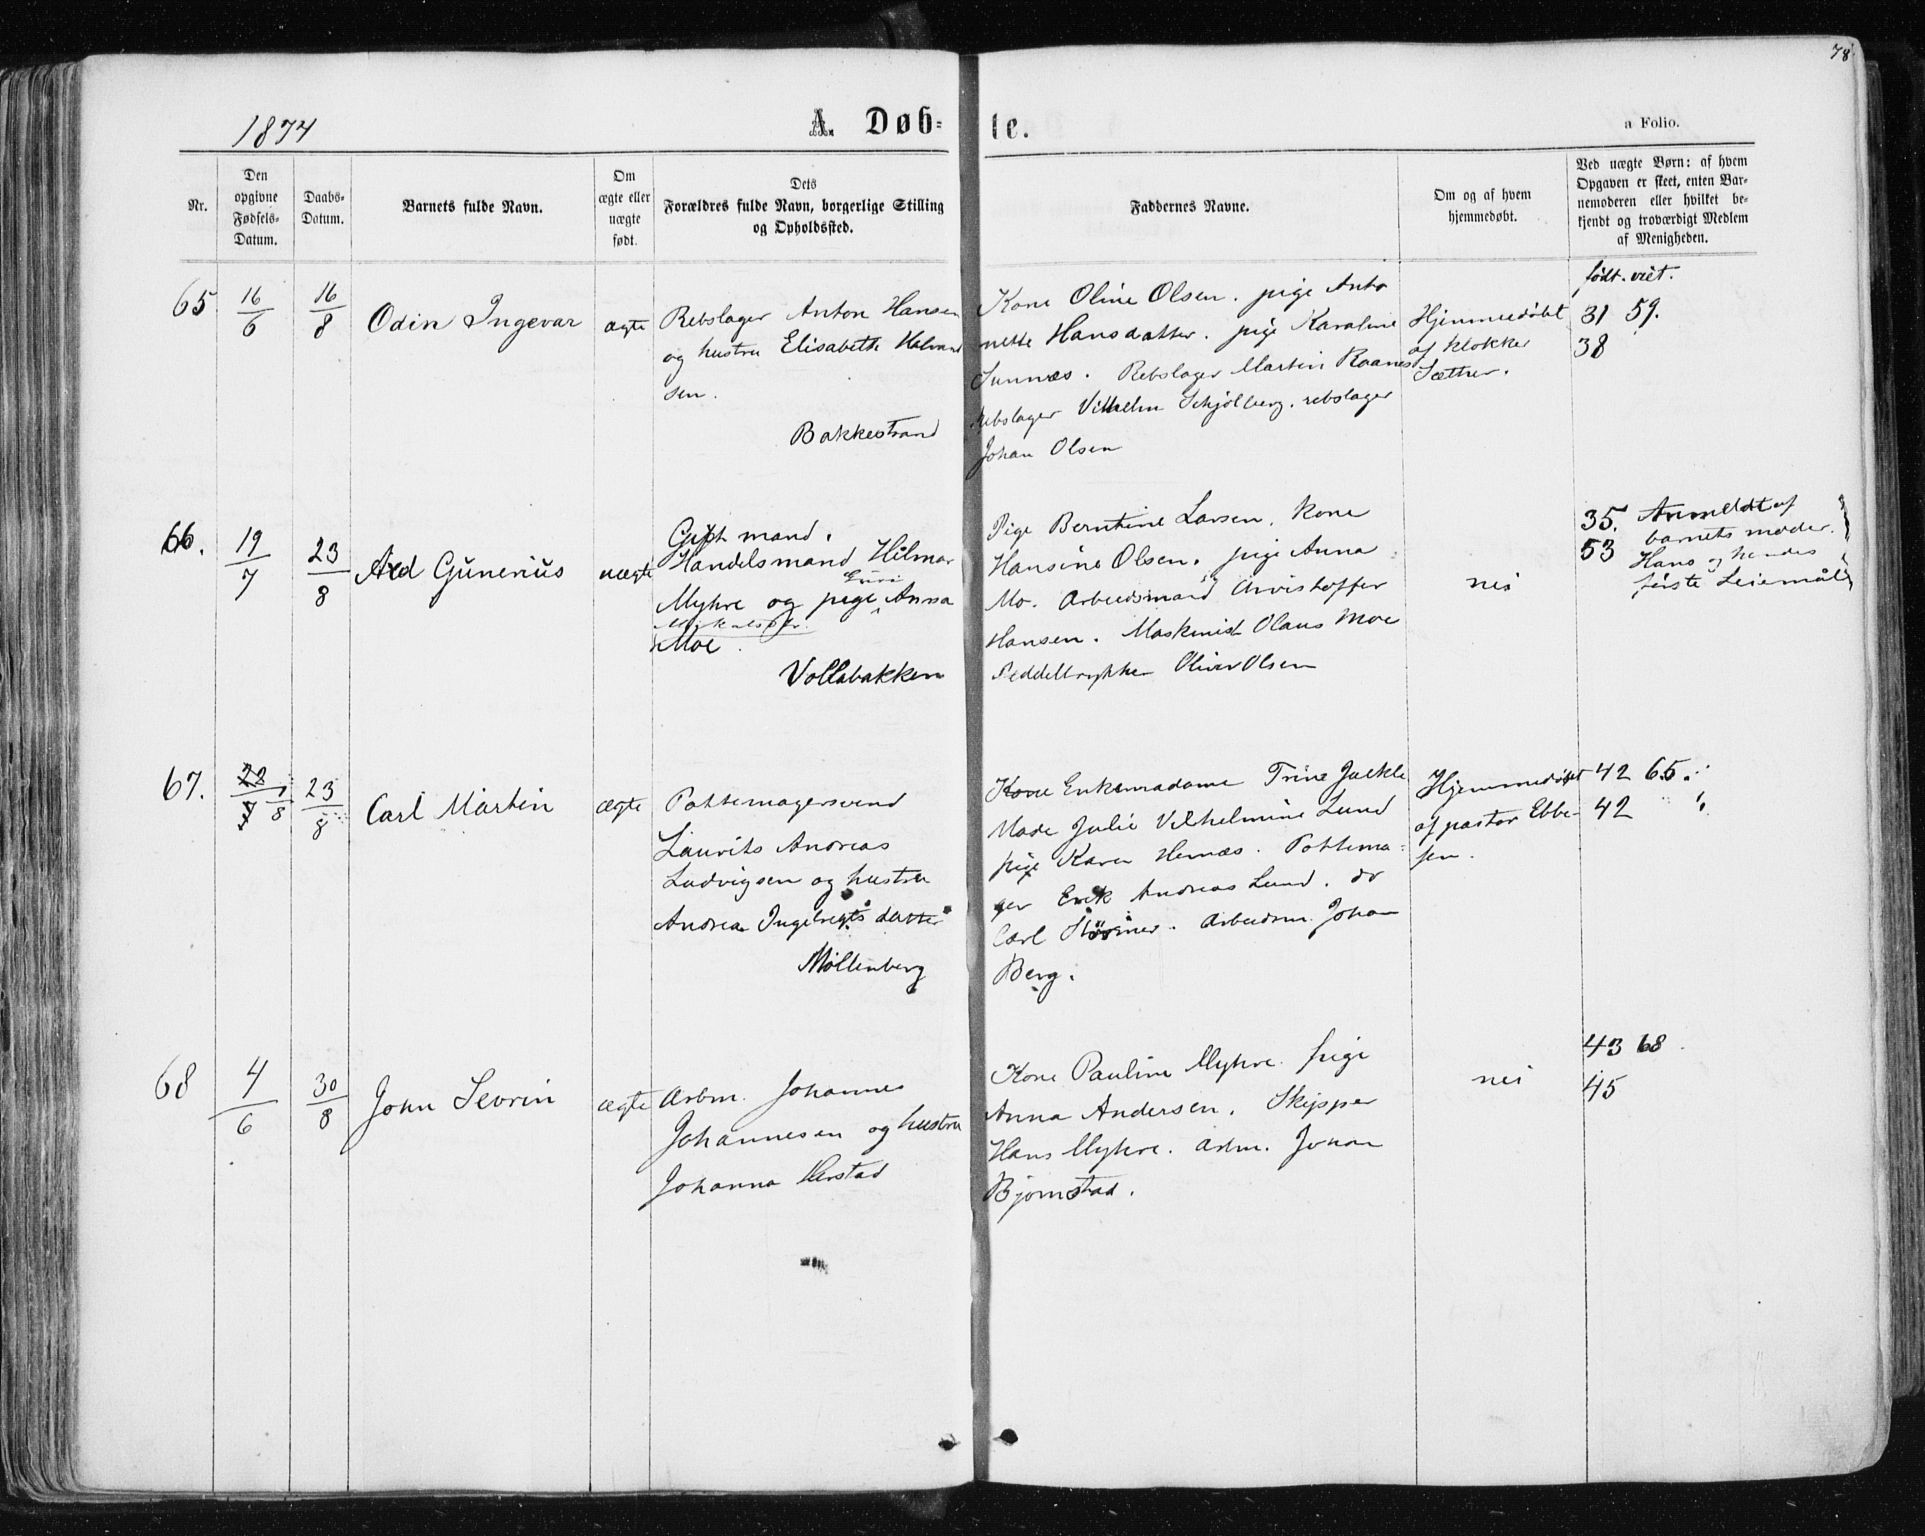 78
1874
A. Døb- te.
a Folio.
Nr.
Den opgivne Fødsels-Datum.
Daabs-Datum.
Barnets fulde Navn.
Om ægte eller uægte født.
Dets Forældres fulde Navn, borgerlige Stilling og Opholdssted.
Faddernes Navne.
Om og af hvem hjemmedøbt.
Ved uægte Børn: af hvem Opgaven er skeet, enten Barnemoderen eller hvilket bekjendt og troværdigt Medlem af Menigheden.
født. viet.
65
16/6
16/8
Odin Ingevar
ægte
Rebslager Anton Hansen
og hustru Elisabeth
sen.
Bakkestrand
Kone Oline Olsen. pige Anto
nette Hansdatter. pige Karoline
Sunnæs. Rebslager Martin Raanes
Rebslager Vilhelm Schjölberg. rebslager
Johan Olsen
Hjemmedöbt
af klokker
Sæther.
31 59.
38
66.
19/7
23/8
Gunerius
uægte
Gift mand.
Handelsmand Hilmar
Myhre og pige Anna
Moe
Vollabakken
Pige Berntine Larsen. Kone
Hansine Olsen. pige Anna
Mo. Arbeidsmand
Hansen. Maskinist Olaus Moe
Seddeltrykker Oliver Olsen
nei
35.
53
Anmeldt af
barnets moder.
Hans og hendes
første Leiemål
67.
22/7 1/8
23/8
Carl Martin
ægte
Pottemagersvend
Laurits Andreas
Ludvigsen og hustru
Andrea Ingebregts datter
Möllenberg
Kone Enkemadame Trine
Made Julie Vilhelmine Lund
pige Karen Hernæs. Pottema-
ger Erik Andreas Lund. do
Carl Arbeidsm. Johan
Berg.
Hjemmedöbt
af pastor Ebbe-
sen.
42 65.
42
68
4/6
30/8
John Sevrin
ægte
Arbm. Johannes
Johannesen og hustru
Johanna
Kone Pauline Myhre. pige
Anna Andersen. Skipper
Hans Myhre. Arbm. Johan
Bjørnstad.
nei
43 68.
45